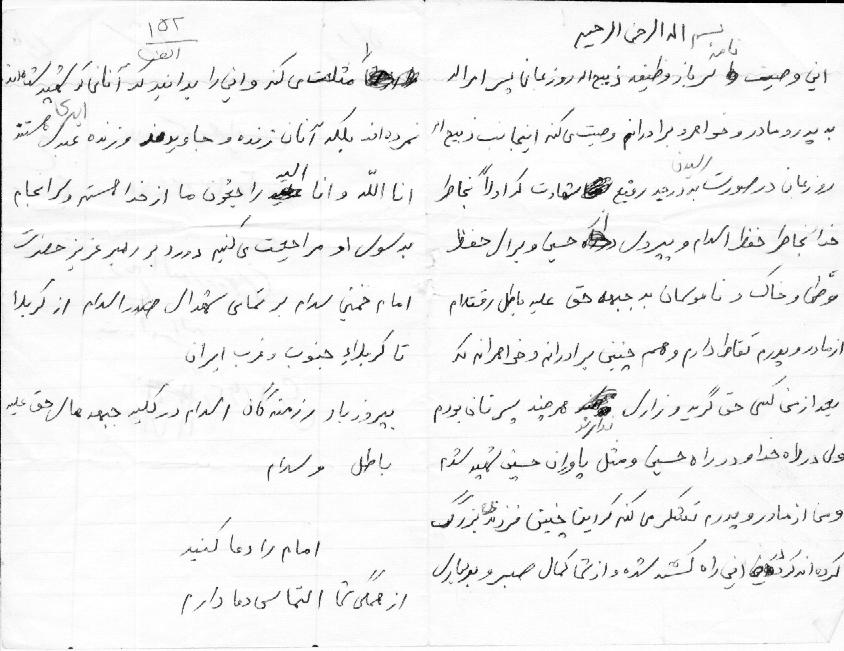 بسم اله الرحمن الرحیم
این وصیت نامه سرباز وظیفه ذبیح اله روزعانی پسر امراله
به پدر و مادر و خواهر و برادرانم وصیت می کنم اینجانب ذبیح اله
روزعانی در صورت رسیدن به درجه رفیع شهادت که اولاً بخاطر
خدا بخاطر حفظ اسلام و پیروی راه حسین و برای حفظ
وطن و خاک و ناموسمان به جبهه حق علیه باطل رفته ام
از مادر و پدرم تقاضا دارم و هم چنین برادرانم و خواهرانم که
بعد از من کسی حق گریه و زاری ندارند هر چند پسرتان بودم
ولی در راه خدا و در راه حسین و مثل یاوران حسین شهید شدم
و من از مادر و پدرم تشکر می کنم که این چنین فرزندی بزرگ
کرده اند که در این راه کشته شده و از شما کمال صبر و بردباری
۱۵۲
الف
را مثلت می کنم و این را بدانید که آنانی که شهید شده اند
نمرده اند بلکه آنان زنده و جاویدند و زنده ابدی هستند
انا الله و انا الیه راجعون ما از خدا هستیم و سرانجام
به سوی او مراجعت می کنیم درود بر رهبر عزیز حضرت
امام خمینی سلام بر تمامی شهدای صدر اسلام از کربلا
تا کربلای جنوب و غرب ایران
پیروز باد رزمندگان اسلام در کلیه جبهه های حق علیه
باطل والسلام
امام را دعا کنید
از همگی شما التماس دعا دارم